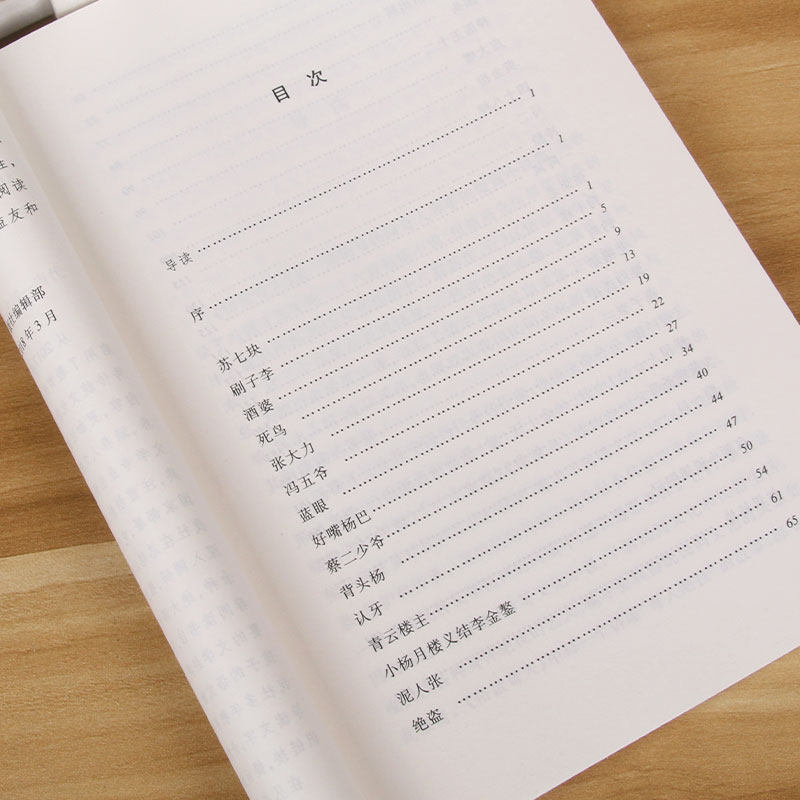 阅读
益友和
编辑部
8年3月
目 次
导读 …… 1
序 …… 1
苏七块 …… 1
刷子李 …… 5
酒婆 …… 9
死鸟 …… 13
张大力 …… 19
冯五爷 …… 22
蓝眼 …… 27
好嘴杨巴 …… 34
蔡二少爷 …… 40
背头杨 …… 44
认牙 …… 47
青云楼主 …… 50
小杨月楼义结李金鏊 …… 54
泥人张 …… 61
绝盗 …… 65